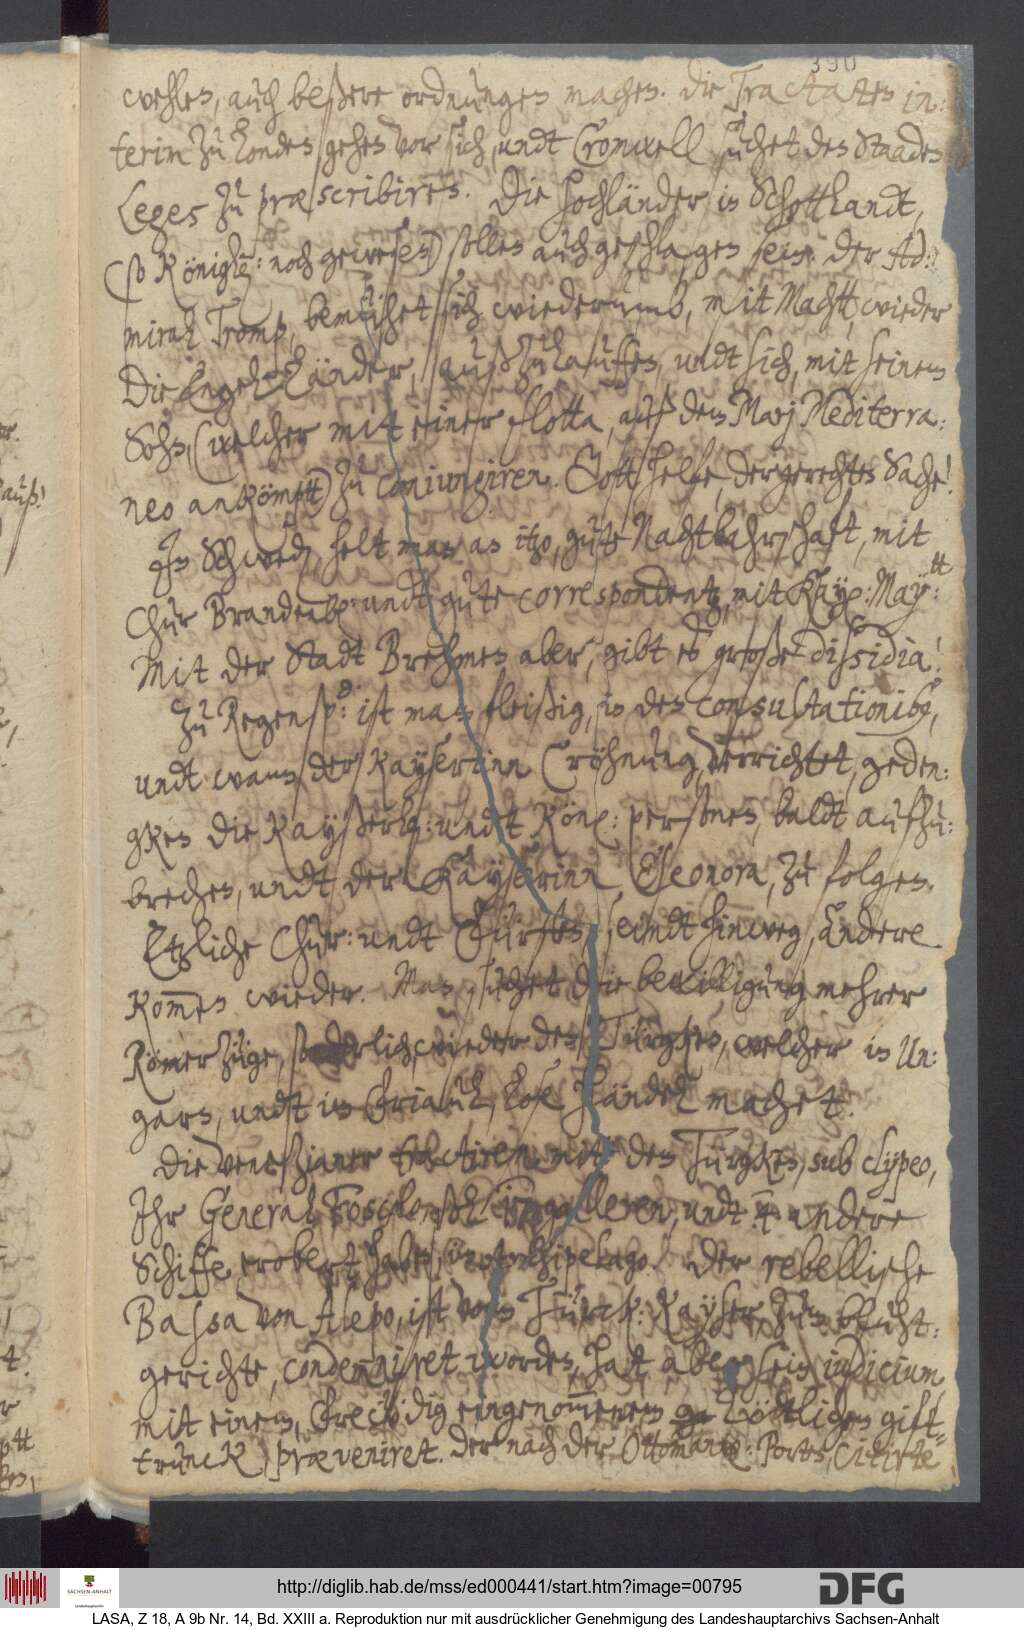 390
wehlen, auch beßere ordnungen machen. die Tractaten in:
terim zu Londen gehen vor sich, undt Cromwell suchet den Staaden
Leges zu præscribiren. Die Hochländer in Schottlandt,
(so Königl: noch gewesen) sollen auch geschlagen sein. der Ad:
miral Tromp, bemühet sich wiederumb, mit Macht, wieder
Die Engelländer, außzulauffen, undt sich, mit seinem
Sohn, (welcher mit einer flotta, auß dem Marj Mediterra:
neo ankömpt) zu coniungiren. Gott helfe, der gerechten Sache!
In Schweden helt man an itzo, gute Nachtbahrschaft, mit
Chur Brandenb: undt gute correspondentz, mit Kay: May:tt
Mit der Stadt Brehmen aber, gibt es große dissidia!
Zu Regensp: ist man fleißig, in den consultationibus,
undt wann der Kayserinn Cröhnung, verrichtet, geden:
gken die Kayserl: undt Kön: personen, baldt aufzu:
brechen, undt der Kayserinn, Eleonora, zu folgen.
Etzliche Chur: undt Fürsten, seindt hinweg, andere
kommen wieder. Man suchet die bewilligung mehrer
Römerzüge, sonderlich wieder den Türgken, welcher in Un:
garn, undt in Friaul, böse Händel machet.
Die Venezianer tractiren mit den Türgken, sub clypeo,
Ihr General Foscolo soll galleren, undt 4 andere
Schiffe erobert haben, im Archipelago. Der rebellische
Bassa von Alepo, ist vom Türck: Kayser, zum bluht:
gerichte, condemniret worden, hat aber sein iudicium
mit einem, freydig eingenommenem tödtlichen gift-
trunck, præveniret. Der nach der Ottomann: Porten, Citirte
http://diglib.hab.de/mss/ed000441/start.htm?image=00795
SACHSEN-ANHALT
DFG
LASA, Z 18, A 9b Nr. 14, Bd. XXIII a. Reproduktion nur mit ausdrücklicher Genehmigung des Landeshauptarchivs Sachsen-Anhalt